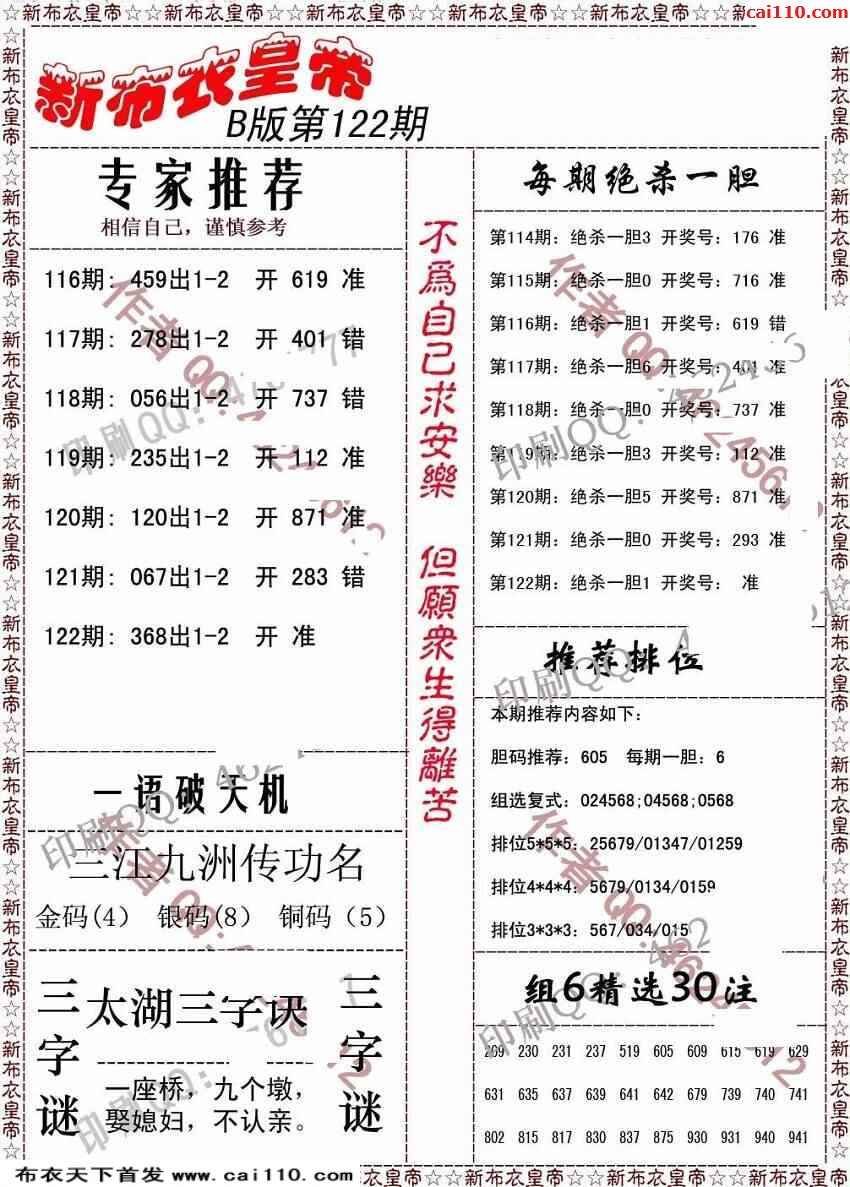 ☆新布衣皇帝☆☆新布衣皇帝☆☆新布衣皇帝☆☆新布衣皇帝☆☆新布衣皇帝☆☆新
cai110.com
新布衣皇帝
B版第122期
专家推荐
相信自己，谨慎参考
116期: 459出1-2 开 619 准
117期: 278出1-2 开 401 错
118期: 056出1-2 开 737 错
119期: 235出1-2 开 112 准
120期: 120出1-2 开 871 准
121期: 067出1-2 开 283 错
122期: 368出1-2 开 准
一语破天机
三江九洲传功名
金码(4) 银码(8) 铜码（5）
三字谜
太湖三字诀
一座桥，九个墩，
娶媳妇，不认亲。
三字谜
不爲自己求安樂 但願衆生得離苦
每期绝杀一胆
第114期: 绝杀一胆3 开奖号: 176 准
第115期: 绝杀一胆0 开奖号: 716 准
第116期: 绝杀一胆1 开奖号: 619 错
第117期: 绝杀一胆6 开奖号: 401 准
第118期: 绝杀一胆0 开奖号: 737 准
第119期: 绝杀一胆3 开奖号: 112 准
第120期: 绝杀一胆5 开奖号: 871 准
第121期: 绝杀一胆0 开奖号: 293 准
第122期: 绝杀一胆1 开奖号: 准
推荐排位
本期推荐内容如下:
胆码推荐: 605 每期一胆: 6
组选复式: 024568;04568;0568
排位5*5*5: 25679/01347/01259
排位4*4*4: 5679/0134/0159
排位3*3*3: 567/034/015
组6精选30注
209 230 231 237 519 605 609 615 619 629
631 635 637 639 641 642 679 739 740 741
802 815 817 830 837 875 930 931 940 941
布衣天下首发 www.cai110.com
衣皇帝☆☆新布衣皇帝☆☆新布衣皇帝☆☆新布衣皇帝☆